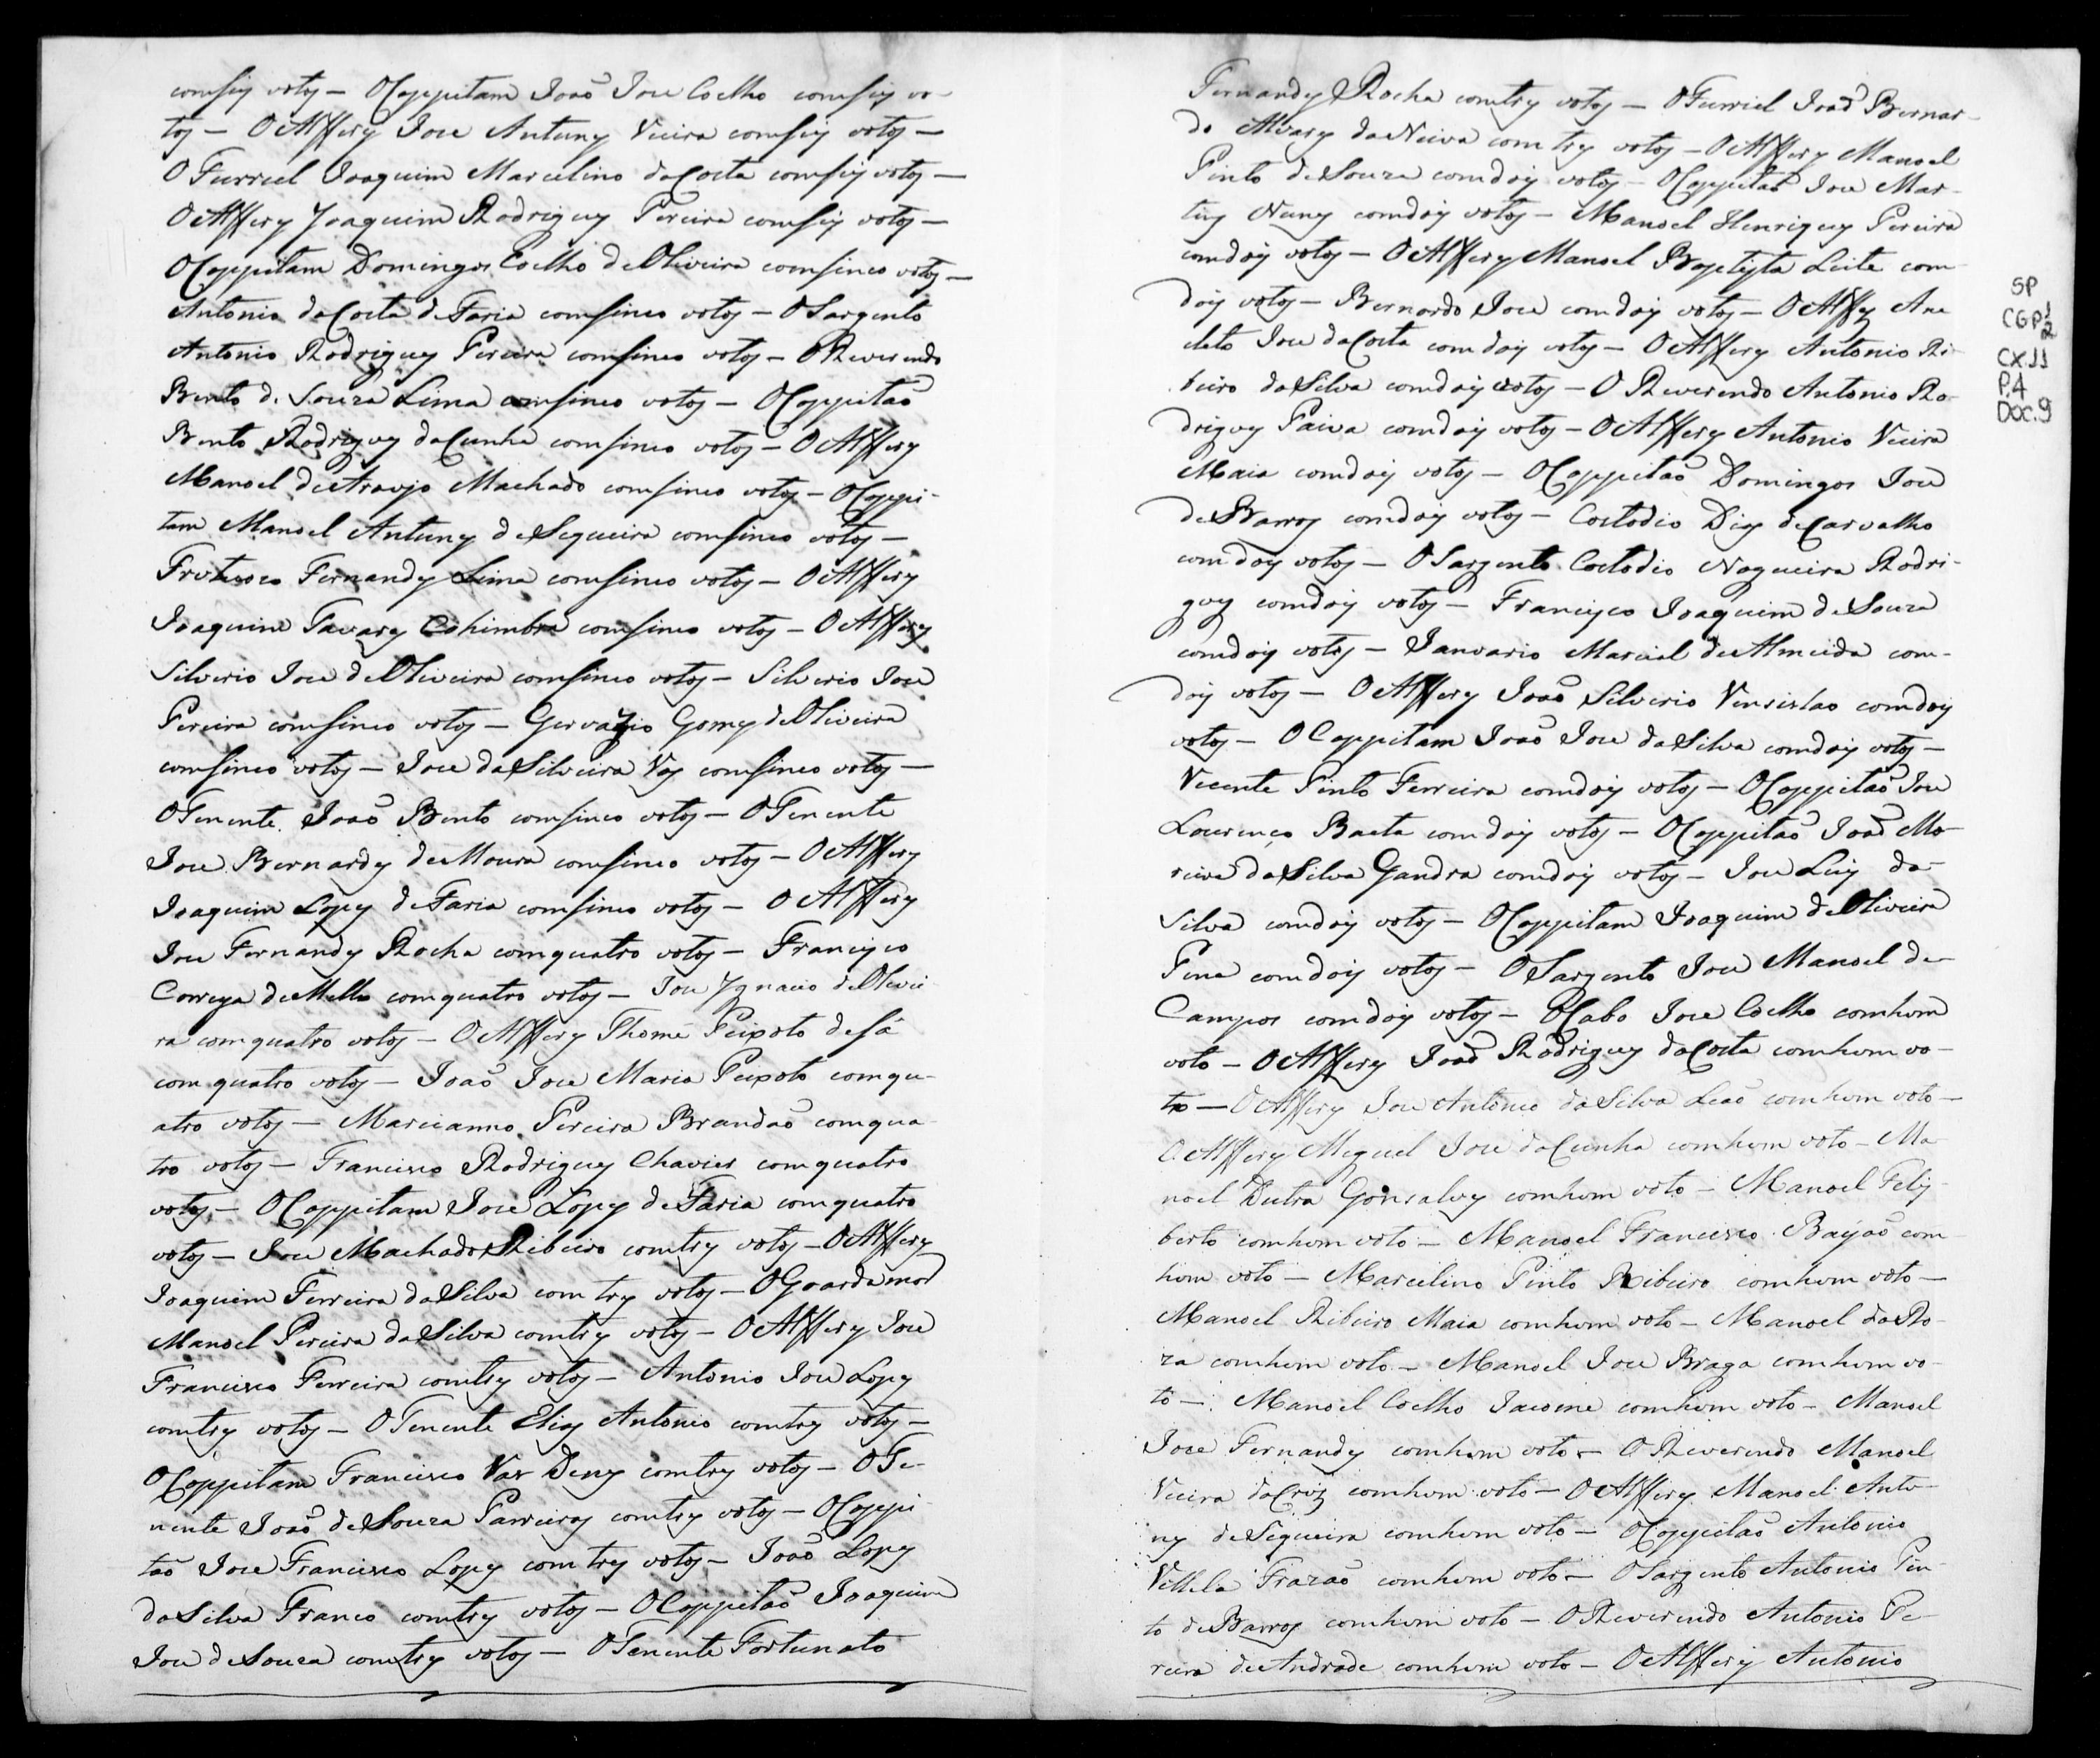 comseis votos – O Cappitam Joaõ Joze Coelho comseis vo-
tos – O Alfferes Joze Antunes Vieira comseis votos –
O Furriel Joaquim Marcelino daCosta comseis votos –
O Alfferes Joaquim Rodrigues Pereira comseis votos –
O Cappitam Domingos Coelho deOliveira comsinco votos –
Antonio daCosta deFaria comsinco votos – O Sargento
Antonio Rodrigues Pereira comsinco votos – O Reverendo
Bento de Souza Lima comsinco votos – O Cappitaõ
Bento Rodrigues daCunha comsinco votos – O Alfferes
Manoel deAraujo Machado comsinco votos – O Cappi-
tam Manoel Antunes deSequeira comsinco votos –
Frutuozo Fernandes Lima comsinco votos – O Alfferes
Joaquim Tavares Cohimbra comsinco votos – O Alfferes
Silverio Joze deOliveira comsinco votos – Silverio Joze
Pereira comsinco votos – Gervazio Gomes deOliveira
comsinco votos – Joze daSilveira Vas comsinco votos –
O Tenente Joaõ Bento comsinco votos – O Tenente
Joze Bernardes deMoura comsinco votos – O Alfferes
Joaquim Lopes deFaria comsinco votos – O Alfferes
Joze Fernandes Rocha comquatro votos – Francisco
Correya deMello comquatro votos – Joze Ygnacio deOlivei-
ra comquatro votos – O Alfferes Thomé Peixoto deSá
comquatro votos – Joaõ Joze Maria Peixoto comqu-
atro votos – Marcianno Pereira Brandaõ comqua-
tro votos – Francisco Rodrigues Chavier comquatro
votos – O Cappitam Joze Lopes deFaria comquatro
votos – Joze Machado Ribeiro comtres votos – O Alfferes
Joaquim Ferreira daSilva comtres votos – O Goardamor
Manoel Pereira daSilva comtres votos – O Alfferes Joze
Francisco Ferreira comtres votos – Antonio Joze Lopes
comtres votos – O Tenente Elias Antonio comtres votos –
O Cappitam Francisco Vas Denys comtres votos – O Te-
nente Joaõ deSouza Parreiras comtres votos – O Cappi-
taõ Joze Francisco Lopes comtres votos – Joaõ Lopes
daSilva Franco comtres votos – O Cappitaõ Joaquim
Joze deSouza comtres votos – O Tenente Fortunato
Fernandes Rocha comtres votos – O Furriel Joaõ Bernar-
do Alvares daNeiva comtres votos – O Alfferes Manoel
Pinto deSouza comdois votos – O Cappitaõ Joze Mar-
tins Nunes comdois votos – Manoel Henriques Pereira
comdois votos – O Alfferes Manoel Baptista Leite com
dois votos – Bernardo Joze comdois votos – O Alffes Ana
cleto Joze daCosta comdois votos – O Alfferes Antonio Ri-
beiro daSilva comdois votos – O Reverendo Antonio Ro-
drigues Paiva comdois votos – O Alfferes Antonio Vieira
Maia comdois votos – O Cappitaõ Domingos Joze
deBarros comdois votos – Costodio Dias deCarvalho
comdois votos – O Sargento Costodio Nogueira Rodri-
gues comdois votos – Francisco Joaquim deSouza
comdois votos – Januario Marcial deAlmeida com-
dois votos – O Alfferes Joaõ Silverio Vensislao comdois
votos – O Cappitam Joaõ Joze daSilva comdois votos –
Vicente Pinto Ferreira comdois votos – O Cappitaõ Joze
Lourenço Baeta comdois votos – O Cappitaõ Joaõ Mo-
reira daSilva Gandra comdois votos – Joze Luis da-
Silva comdois votos – O Cappitam Joaquim deOliveira
Pena comdois votos – O Sargento Joze Manoel de-
Campos comdois votos – O Cabo Joze Coelho comhum
voto – O Alfferes Joaõ Rodrigues daCosta comhum vo-
to – O Alfferes Joze Antonio daSilva Leaõ comhum voto –
O Alfferes Meguel Joze daCunha comhum voto – Ma-
noel Dutra Gonsalves comhum voto – Manoel Felis-
berto comhum voto – Manoel Francisco Bayaõ com
hum voto – Marcelino Pinto Ribeiro comhum voto –
Manoel Ribeiro Maia comhum voto – Manoel daRo-
za comhum voto – Manoel Joze Braga comhum vo-
to – Manoel Coelho Jacome comhum voto – Manoel
Joze Fernandes comhum voto – O Reverendo Manoel
Vieira daCruz comhum voto – O Alfferes Manoel Antu-
nes deSequeira comhum voto – O Cappitaõ Antonio
Villela Frazaõ comhum voto – O Sargento Antonio Pin-
to deBarros comhum voto – O Reverendo Antonio Pe-
reira deAndrade comhum voto – O Alfferes Antonio
SP
CGP 1/2
CX.11
P.4
DOC.9